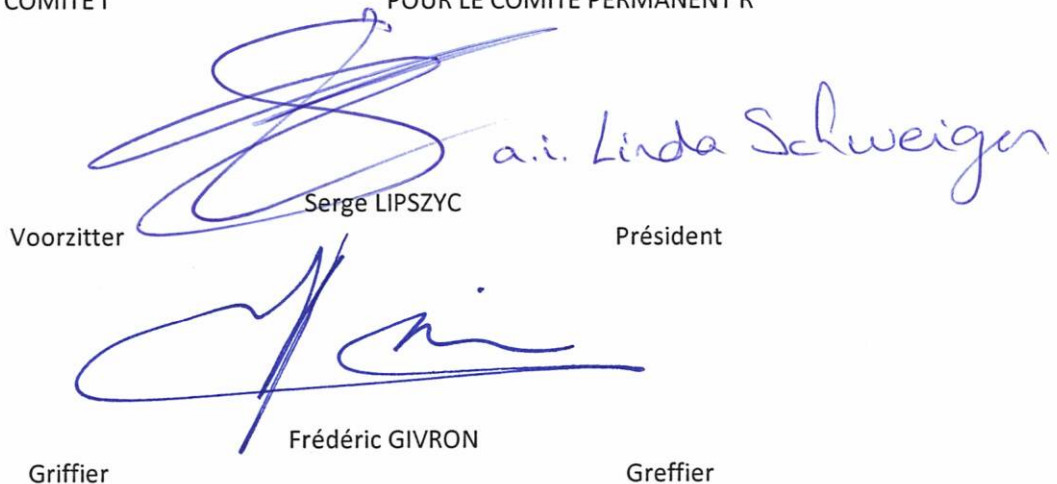 COMITÉ I POUR LE COMITÉ PERMANENT R
a.i. Linda Schweiger
Serge LIPSZYC
Voorzitter Président
Frédéric GIVRON
Griffier Greffier